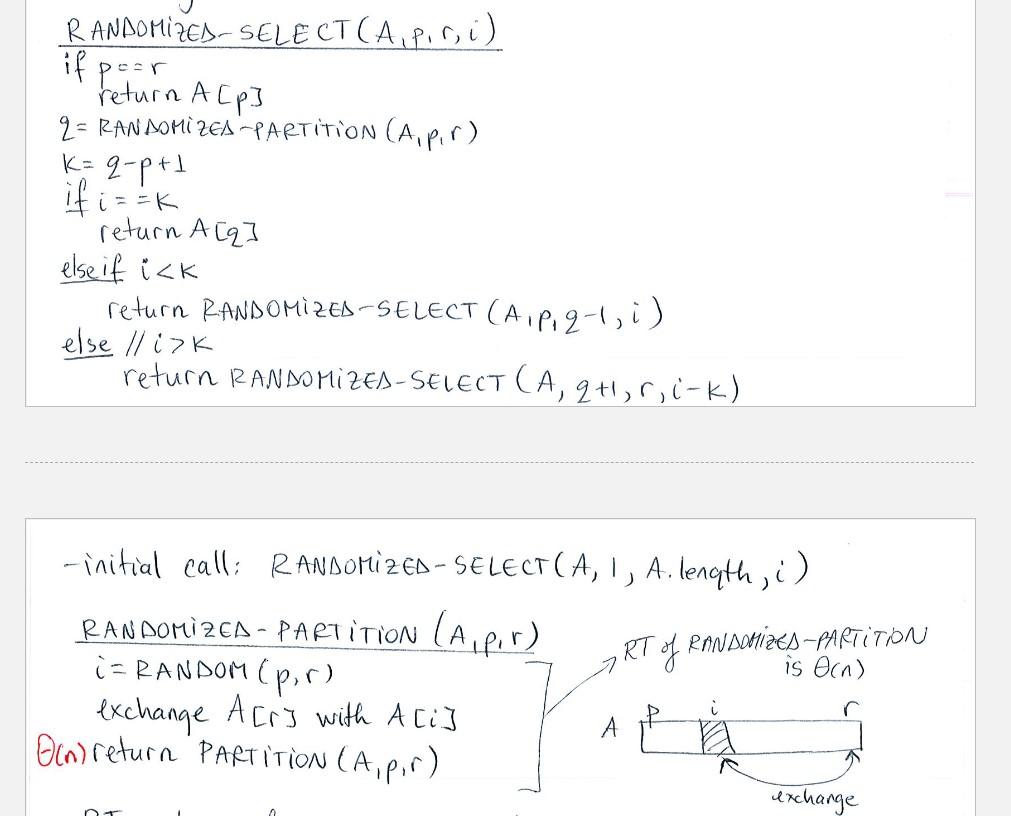 RANDOMIZED-SELECT(A,p,r,i)
if p==r
return A[p]
q= RANDOMIZED-PARTITION(A,p,r)
k= q-p+1
if i==k
return A[q]
elseif i<k
return RANDOMIZED-SELECT(A,p,q-1,i)
else // i>k
return RANDOMIZED-SELECT(A,q+1,r,i-k)
-initial call: RANDOMIZED-SELECT(A,1,A.length,i)
RANDOMIZED-PARTITION(A,p,r)
i=RANDOM(p,r)
exchange A[r] with A[i]
Θ(n) return PARTITION(A,p,r)
RT of RANDOMIZED-PARTITION
is Θ(n)
A p i r
exchange